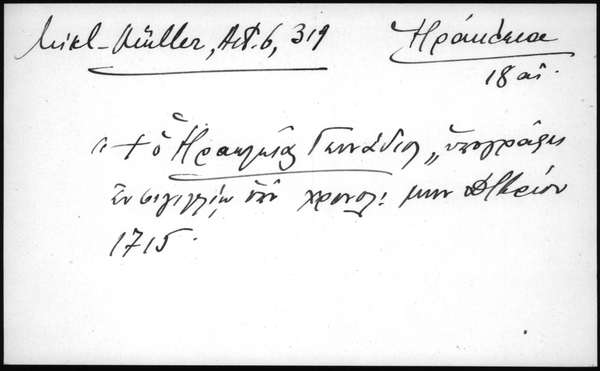 Mikl-Müller, Act. 6, 319
Ἡράκλεια
18 αἰ.
"+ ὁ Ἡρακλείας Γεννάδιος" ὑπογράφει
ἐν σιγιλλίῳ ὑπὸ χρονολ: μην Ὀκτωβρίου
1715.